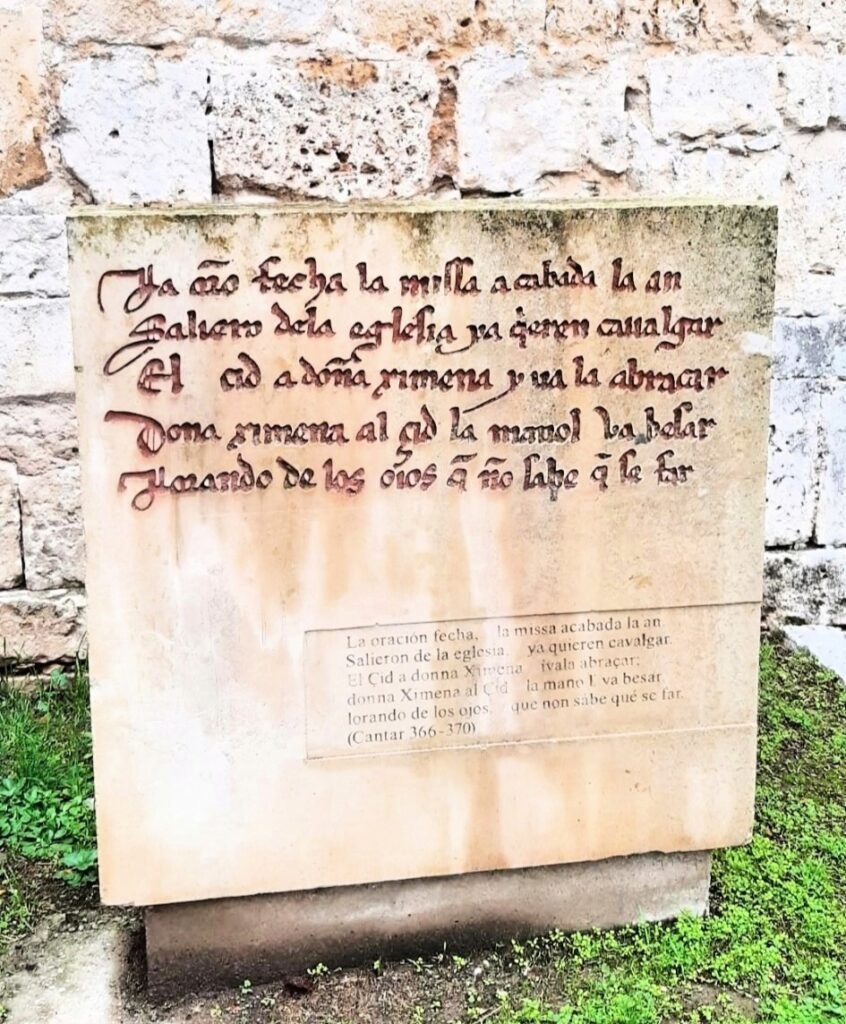 Ya or̃o fecha la missa acabada la an
Saliero dela eglesia ya q̃eren caualgar
El cid a doña ximena yua la abraçar
Dona ximena al çid la manol va besar
lorando de los oios q̃ ño sabe q̃ se far
La oración fecha, la missa acabada la an
Salieron de la eglesia, ya quieren cavalgar.
El Çid a donna Ximena ívala abraçar;
donna Ximena al Çid la mano l' va besar
lorando de los ojos, que non sabe qué se far.
(Cantar 366-370)